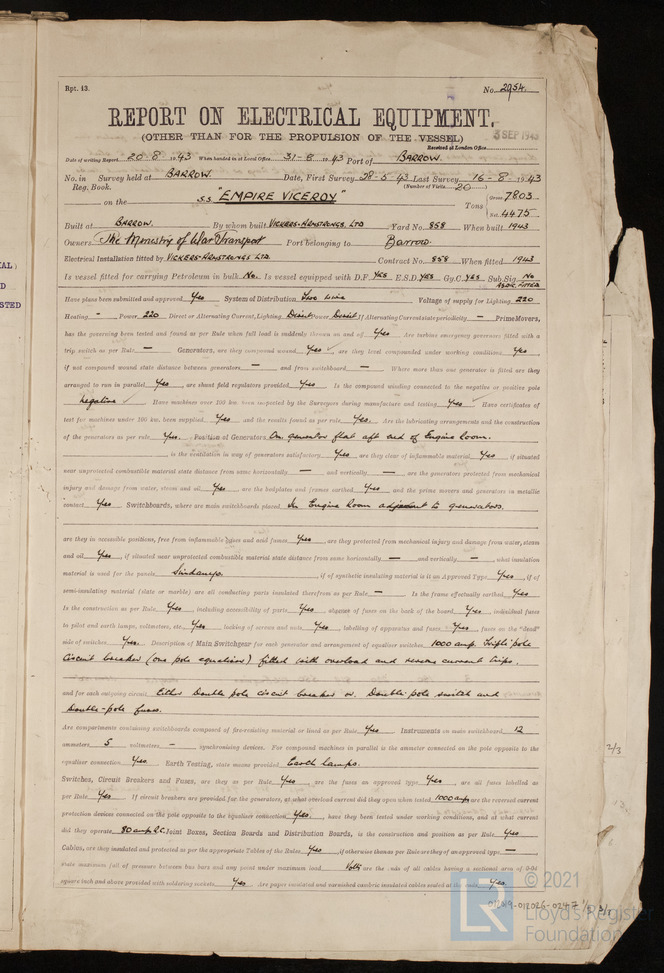 Rpt. 13.
No. 2954.
REPORT ON ELECTRICAL EQUIPMENT.
(OTHER THAN FOR THE PROPULSION OF THE VESSEL)
3 SEP 1943
Received at London Office
Date of writing Report 20-8-1943 When handed in at Local Office 31-8-1943 Port of BARROW
No. in Survey held at BARROW Date, First Survey 28-5-43 Last Survey 16-8-1943
Reg. Book. (Number of Visits 20)
on the S.S. "EMPIRE VICEROY" Tons Gross 7803 Net 4475
Built at BARROW By whom built VICKERS-ARMSTRONGS, LTD Yard No. 858 When built 1943
Owners The Ministry of War Transport Port belonging to Barrow
Electrical Installation fitted by VICKERS-ARMSTRONGS LTD. Contract No. 858 When fitted 1943
Is vessel fitted for carrying Petroleum in bulk No. Is vessel equipped with D.F. YES E.S.D. YES Gy.C. YES Sub.Sig. No
Have plans been submitted and approved Yes System of Distribution Two wire Voltage of supply for Lighting 220
Heating - Power 220 Direct or Alternating Current, Lighting Direct Power Direct If Alternating Current state periodicity — Prime Movers,
has the governing been tested and found as per Rule when full load is suddenly thrown on and off Yes Are turbine emergency governors fitted with a
trip switch as per Rule — Generators, are they compound wound Yes are they level compounded under working conditions Yes,
if not compound wound state distance between generators — and from switchboard — Where more than one generator is fitted are they
arranged to run in parallel Yes, are shunt field regulators provided Yes. Is the compound winding connected to the negative or positive pole
negative Have machines over 100 kw. been inspected by the Surveyors during manufacture and testing Yes Have certificates of
test for machines under 100 kw. been supplied Yes and the results found as per rule Yes. Are the lubricating arrangements and the construction
of the generators as per rule Yes. Position of Generators On generator flat aft end of Engine Room.
is the ventilation in way of generators satisfactory Yes are they clear of inflammable material Yes, if situated
near unprotected combustible material state distance from same horizontally — and vertically — are the generators protected from mechanical
injury and damage from water, steam and oil Yes, are the bedplates and frames earthed Yes and the prime movers and generators in metallic
contact Yes Switchboards, where are main switchboards placed In Engine Room adjacent to generators.
are they in accessible positions, free from inflammable gases and acid fumes Yes, are they protected from mechanical injury and damage from water, steam
and oil Yes, if situated near unprotected combustible material state distance from same horizontally — and vertically —, what insulation
material is used for the panels Sindanyo, if of synthetic insulating material is it an Approved Type Yes, if of
semi-insulating material (slate or marble) are all conducting parts insulated therefrom as per Rule — Is the frame effectually earthed Yes
Is the construction as per Rule Yes including accessibility of parts Yes absence of fuses on the back of the board Yes, individual fuses
to pilot and earth lamps, voltmeters, etc. Yes locking of screws and nuts Yes labelling of apparatus and fuses Yes fuses on the "dead"
side of switches Yes. Description of Main Switchgear for each generator and arrangement of equaliser switches 1000 amp. triple pole
circuit breaker (one pole equalising) fitted with overload and reverse current trips.
and for each outgoing circuit Either Double pole circuit breaker or Double-pole switch and
Double-pole fuses.
Are compartments containing switchboards composed of fire-resisting material or lined as per Rule Yes Instruments on main switchboard 12
ammeters 5 voltmeters — synchronising devices. For compound machines in parallel is the ammeter connected on the pole opposite to the
equaliser connection Yes. Earth Testing, state means provided Earth lamps.
Switches, Circuit Breakers and Fuses, are they as per Rule Yes are the fuses an approved type Yes are all fuses labelled as
per Rule Yes If circuit breakers are provided for the generators, at what overload current did they open when tested 1000 amps are the reversed current
protection devices connected on the pole opposite to the equaliser connection Yes. have they been tested under working conditions, and at what current
did they operate 80 amps R.C. Joint Boxes, Section Boards and Distribution Boards, is the construction and position as per Rule Yes
Cables, are they insulated and protected as per the appropriate Tables of the Rules Yes if otherwise than as per Rule are they of an approved type —
state maximum fall of pressure between bus bars and any point under maximum load Volts are the ends of all cables having a sectional area of 0.04
square inch and above provided with soldering sockets Yes Are paper insulated and varnished cambric insulated cables sealed at the ends Yes.
012019-012026-0247 1/3
2/3
© 2021
LR
Lloyd's Register
Foundation